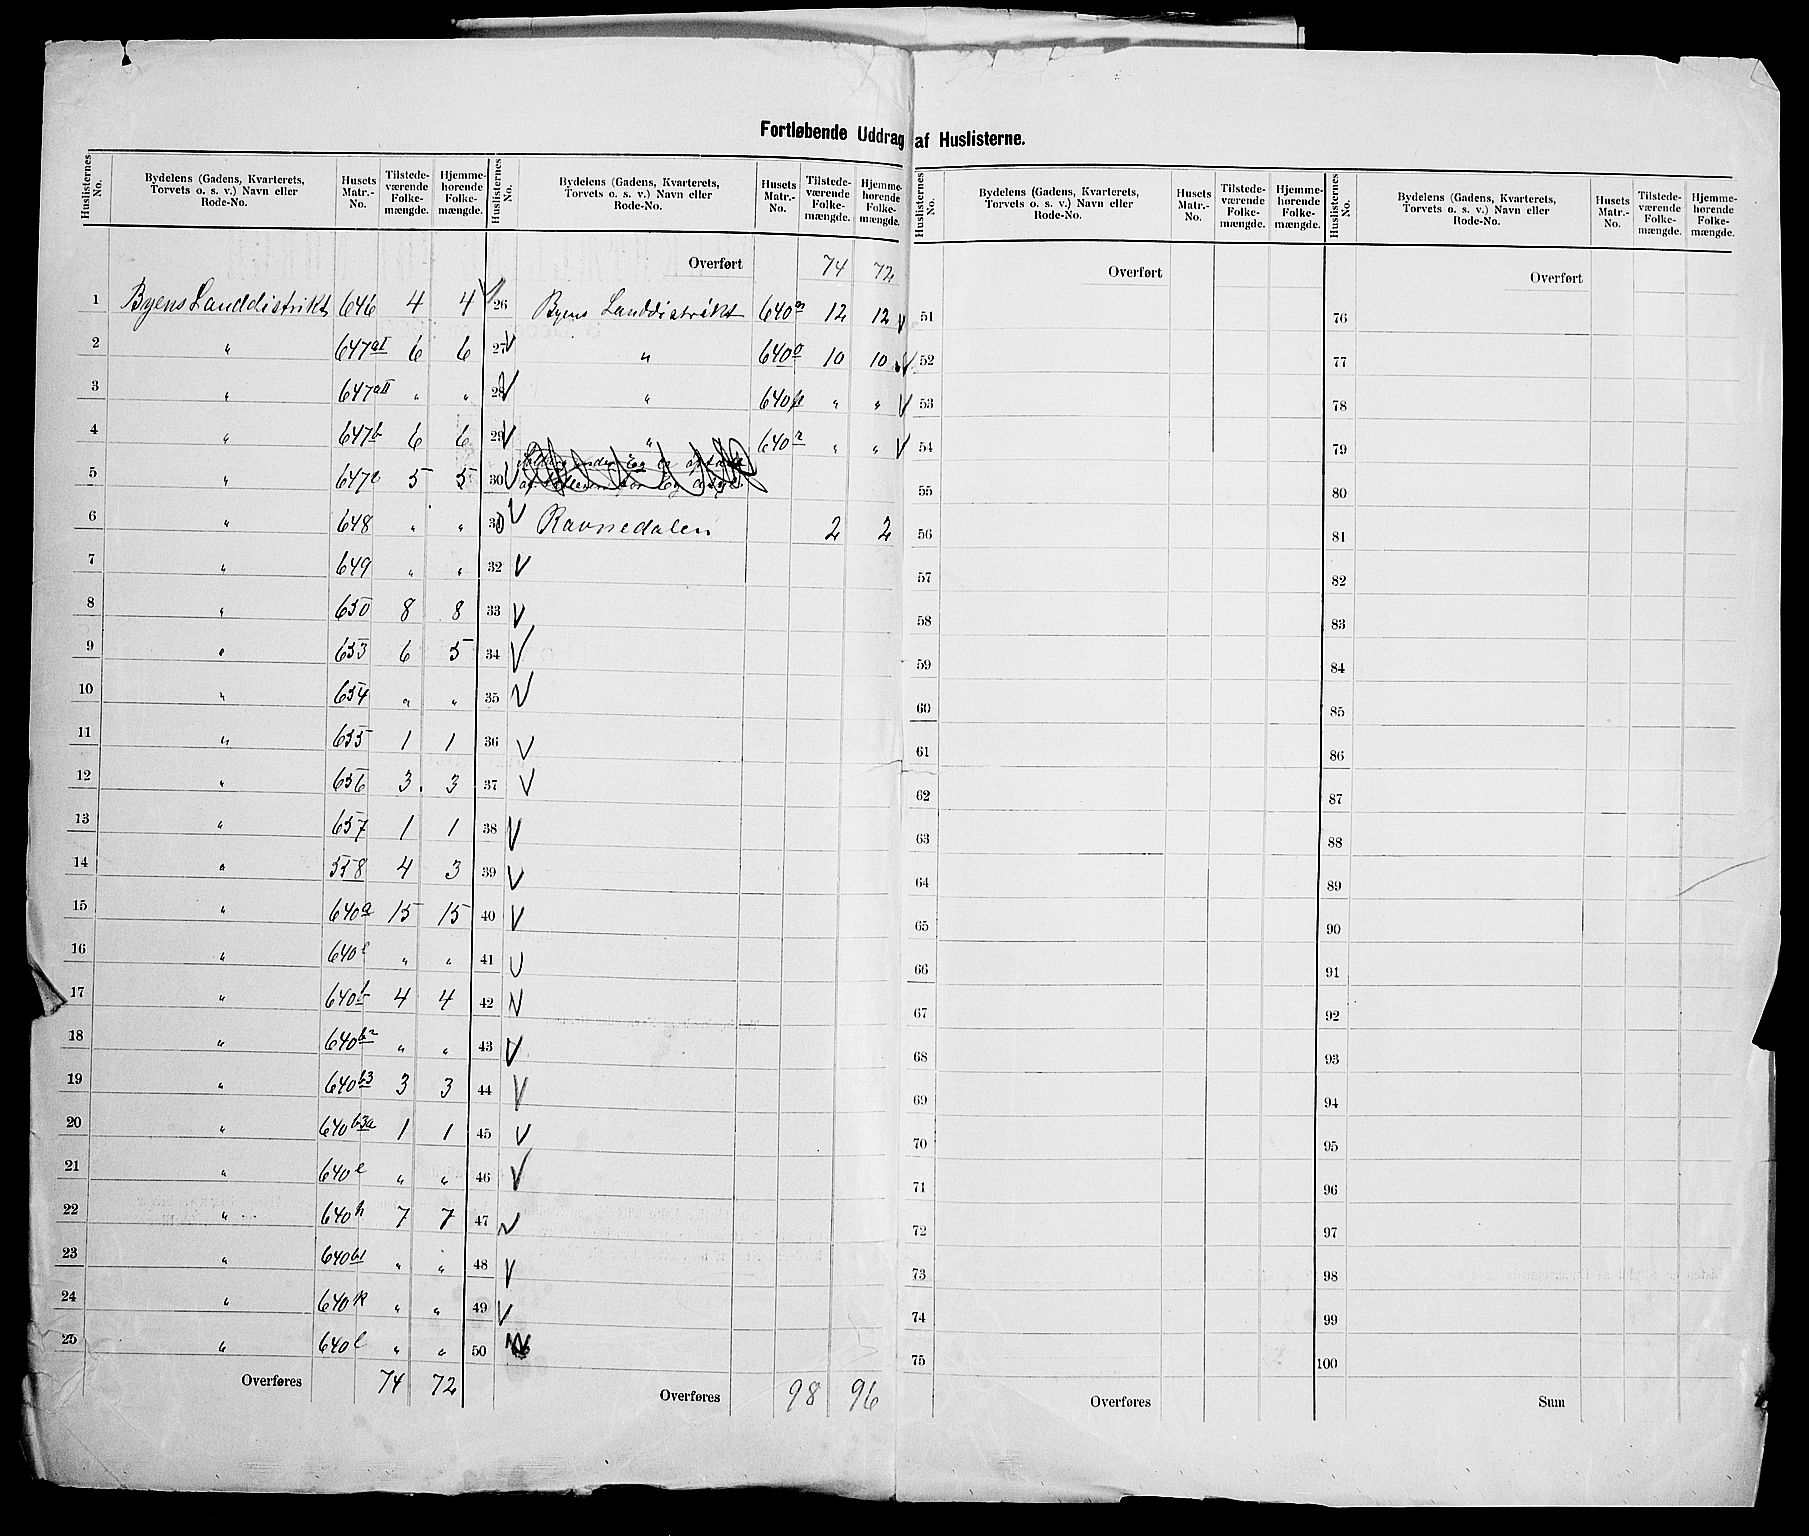 Fortløbende Uddrag af Huslisterne.
Huslisternes No. | Bydelens (Gadens, Kvarterets, Torvets o. s. v.) Navn eller Rode-No. | Husets Matr.-No. | Tilstedeværende Folkemængde. | Hjemmehørende Folkemængde.
1 Byens Landdistrikt 646 4 4
2 " 647aI 6 6
3 " 647aII " "
4 " 647b 6 6
5 " 647c 5 5
6 " 648 " "
7 " 649 " "
8 " 650 8 8
9 " 653 6 5
10 " 654 " "
11 " 655 1 1
12 " 656 3 3
13 " 657 1 1
14 " 558 4 3
15 " 640a 15 15
16 " 640l " "
17 " 640b 4 4
18 " 640b2 " "
19 " 640b3 3 3
20 " 640b3a 1 1
21 " 640e " "
22 " 640h 7 7
23 " 640b1 " "
24 " 640k " "
25 " 640l " "
Overføres 74 72
Huslisternes No. | Bydelens (Gadens, Kvarterets, Torvets o. s. v.) Navn eller Rode-No. | Husets Matr.-No. | Tilstedeværende Folkemængde. | Hjemmehørende Folkemængde.
Overført 74 72
26 Byens Landdistrikt 640n 12 12
27 " 640o 10 10
28 " 640p " "
29 " 640 " "
30
31 Ravnedalen 2 2
32
33
34
35
36
37
38
39
40
41
42
43
44
45
46
47
48
49
50
Overføres 98 96
Huslisternes No. | Bydelens (Gadens, Kvarterets, Torvets o. s. v.) Navn eller Rode-No. | Husets Matr.-No. | Tilstedeværende Folkemængde. | Hjemmehørende Folkemængde.
Overført
51
52
53
54
55
56
57
58
59
60
61
62
63
64
65
66
67
68
69
70
71
72
73
74
75
Overføres
Huslisternes No. | Bydelens (Gadens, Kvarterets, Torvets o. s. v.) Navn eller Rode-No. | Husets Matr.-No. | Tilstedeværende Folkemængde. | Hjemmehørende Folkemængde.
Overført
76
77
78
79
80
81
82
83
84
85
86
87
88
89
90
91
92
93
94
95
96
97
98
99
100
Sum